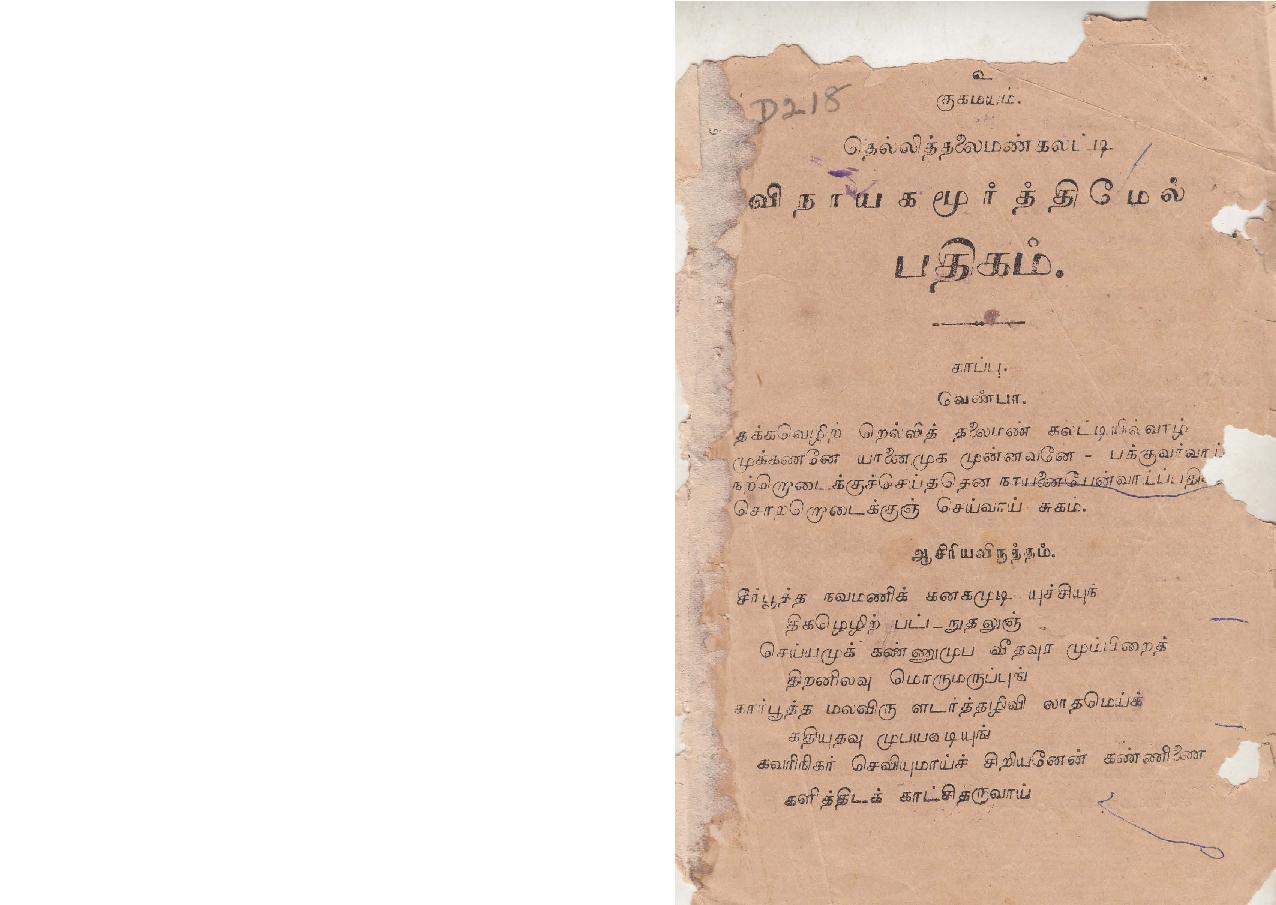 உ
குகமயம்.
D218
தெல்லித்தலைமண்கலட்டி
விநாயகமூர்த்திமேல்
பதிகம்.
காப்பு.
வேண்பா.
தக்கவெழிற் றெல்லித் தலைமண் கலட்டியில்வாழ்
முக்கணனே யானைமுக முன்னவனே - பக்குவர்வாய்
நற்றொடைக்குச்செய்ததென நாயனையேன்வாய்ப்பதி
சொற்றொடைக்குஞ் செய்வாய் சுகம்.
ஆசிரியவிருத்தம்.
சீர்பூத்த நவமணிக் கனகமுடி யுச்சியுந்
திகழெழிற் பட்டநுதலுஞ்
செய்யமுக் கண்ணுமுப வீதவுர மும்பிறைத்
திறனிலவு மொருமருப்புங்
கார்பூத்த மலவிரு ளடர்த்தழிவி லாதமெய்க்
கதியுதவு முபயவடியுங்
கவரிநிகர் செவியுமாய்ச் சிறியனேன் கண்ணிணை
களித்திடக் காட்சிதருவாய்